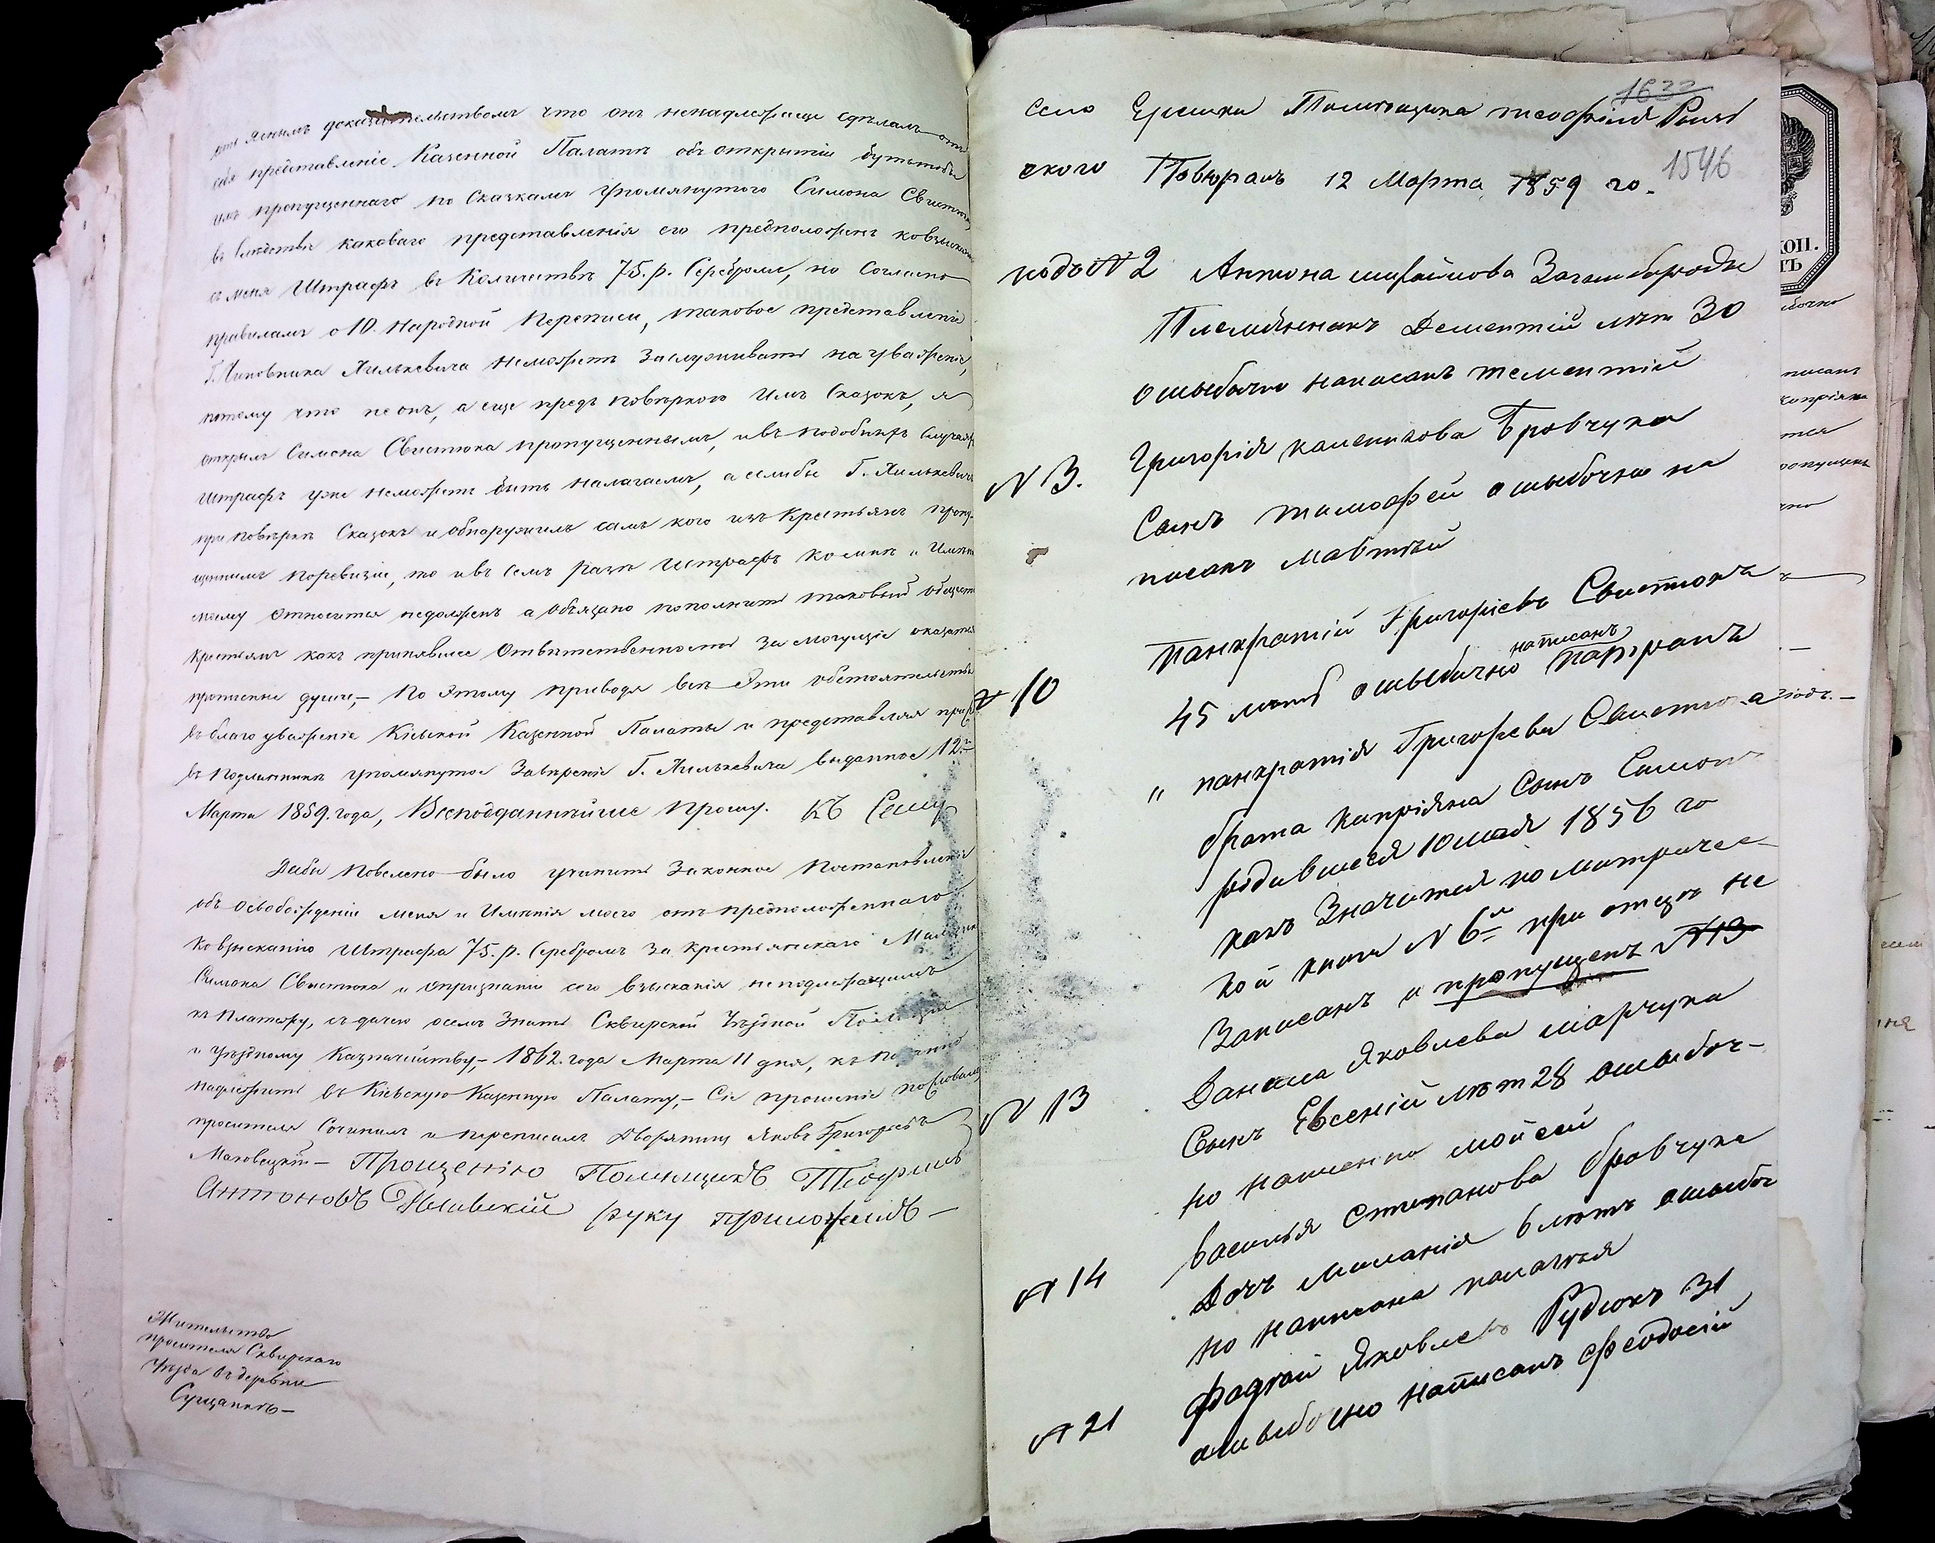 яснымъ доказательствомъ что онъ ненадлежаще сдѣлалъ отъ
себя представленіе Казенной Палатѣ объ открытіи бутто бы
имъ пропущеннаго по Сказкамъ упомянутого Симона Свистюка
въ слѣдствіе каковаго представленія его предположенъ ко взысканію
съ меня Штрафъ въ Количествѣ 75. р. Серебромъ, но Согласно
правиламъ о 10. Народной Переписи, таковое представленіе
Г. Чиновника Хилькевича неможетъ Заслуживать на уваженіе,
потому что не онъ, а еще предъ повѣркою Имъ Сказокъ, я
открылъ Симона Свистюка пропущеннымъ, и въ подобныхъ Случаяхъ
Штрафъ уже неможетъ быть налагаемъ, а если бы Г. Хилькевичъ
при повѣркѣ Сказокъ и обнаружилъ самъ кого изъ Крестьянъ пропу-
щеннымъ поревизіи, то и въ семъ разѣ Штрафъ ко мнѣ и Имѣнію
моему относится недолженъ а Обязано пополнить таковый общество
Крестьянъ какъ принявшее Отвѣтственность За могущіе оказаться
прописные души,- По этому приводя всѣ Эти обстоятельства
въ благоуваженіе Кіевской Казенной Палаты и представляя при семъ
въ Подлинникѣ упомянутое Завѣреніе Г. Хилькевича выданное 12го
Марта 1859. года, Всеподданнѣйше прошу. Къ Сему
Дабы повелено было учинить Законное Постановленіе
объ освобожденіи меня и Имѣнія моего отъ предположеннаго
ко взысканію Штрафа 75. р. Серебромъ за крестьянскаго Мальчика
Симона Свистюка и опризнаніи сего взысканія неподлежащимъ
къ платежу, съ дачею осемъ Знать Сквирской Уѣздной Полиціи
и Уѣздному Казначейству,- 1862. года Марта 11 дня, къ подачѣ
надлежитъ въ Кіевскую Казенную Палату,- Сіе прошеніе пословамъ
просителя Сочинилъ и переписалъ Дворянинъ Яковъ Григорьевъ
Маковецкій - Прошенію Помѣщикъ Теофилъ
Антоновъ руку приложилъ -
Жительство
просителя Сквирскаго
Уѣзда въ деревнѣ
Сущанкѣ -
1632
село Ерешки Помѣщика теофиля
ского Повѣрялъ 12 Марта 1859 го.
1546
подъ № 2 Антона Загшбороды
Племѣнникъ Дементій лѣт 30
ошыбочно написанъ тементій
№ 3. Григорія Бровчука
Сынъ тимофей ошыбочно на
писанъ Мавтѣй
№ 10 Панкратій Григоріевъ Свистюкъ
написанъ
45 лѣтъ ошыбочно
" панкратія Григорьева Свистюка
брата Кипріяна Сынъ Симонъ
родившейся 10 мая 1856 го
какъ Значится по метричес-
кой книги № 6й при отцѣ не
Записанъ и пропущенъ № 13
№ 13 Данила Яковлева Марчука
Сынъ Евсеній лѣт 28 ошыбоч-
но написано мойсей
№ 14 Василья Степанова бровчука
Дочъ Миланія 6 лѣтъ ошыбоч
но написана палагѣя
№ 21 Фадѣй Яковлевъ Рудюкъ 31
ошыбочно написанъ феодосій